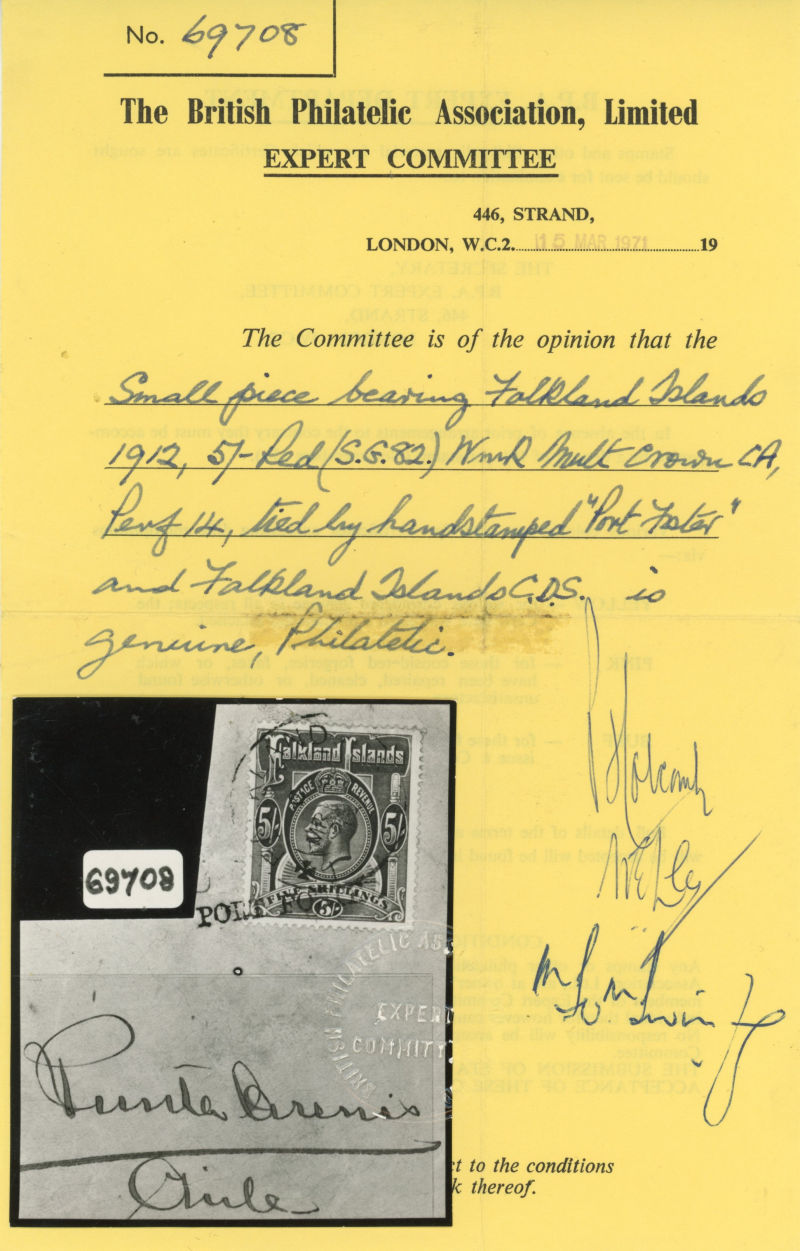 No. 69708
The British Philatelic Association, Limited
EXPERT COMMITTEE
446, STRAND,
LONDON, W.C.2. 15 MAR 1971 19
The Committee is of the opinion that the
Small piece bearing Falkland Islands
1912, 5/- Red (S.G.82.) Wmk Mult Crown CA,
Perf 14, tied by handstamped "Port Foster"
and Falkland Islands C.D.S. is
genuine, Philatelic.
Falkland Islands
POSTAGE REVENUE
5/- 5/-
FIVE SHILLINGS
5/-
69708
PORT FO
BRITISH PHILATELIC AS
EXPERT
COMMITT
Punta Arenas
Chile
ct to the conditions
k thereof.